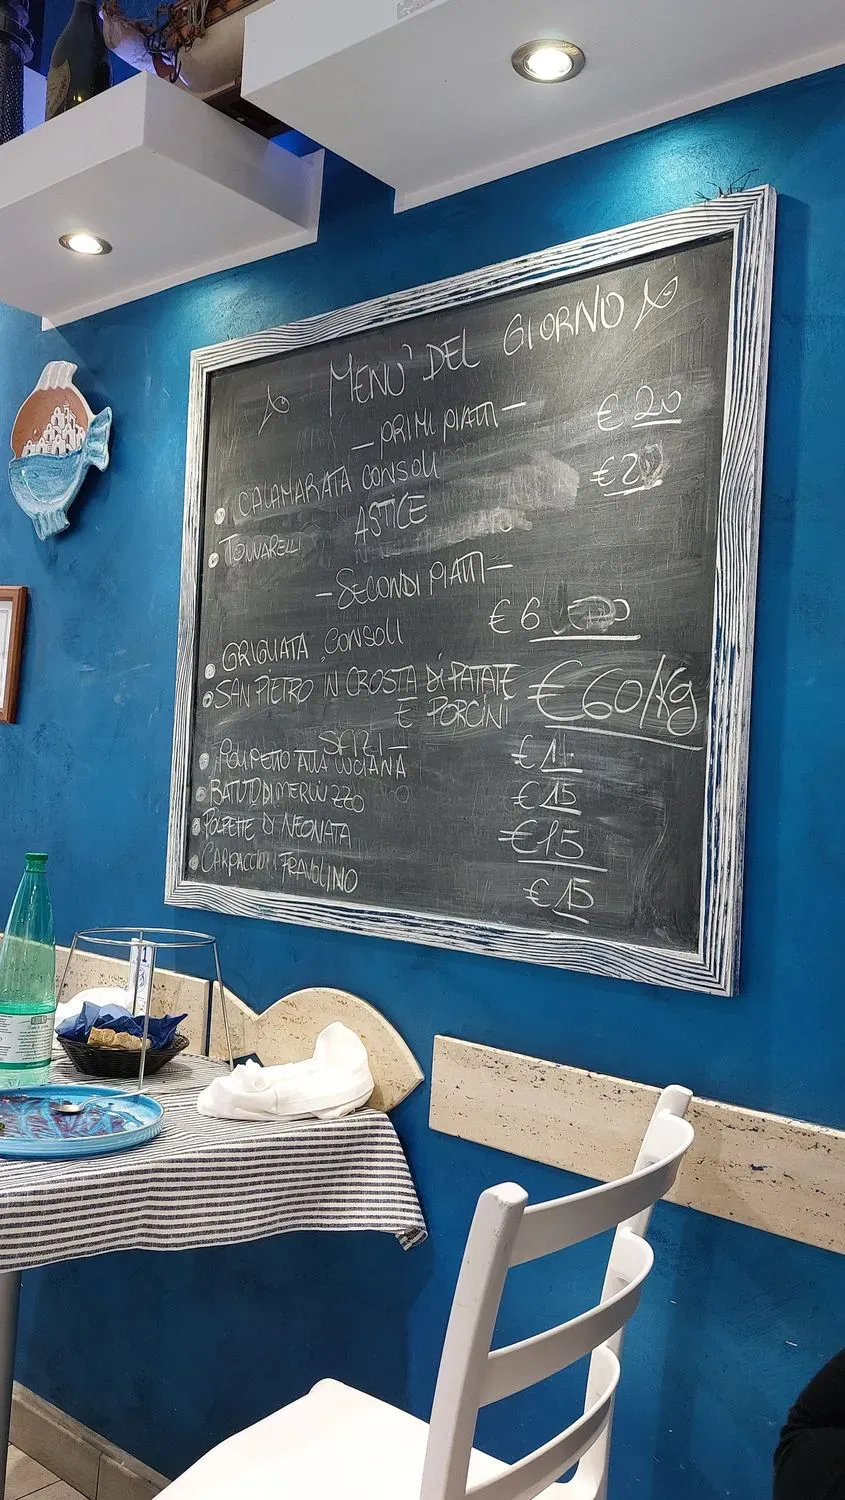 MENU' DEL GIORNO
— PRIMI PIATTI —
CALAMARATA CONSOLI € 20
TONNARELLI ASTICE
— SECONDI PIATTI —
GRIGLIATA CONSOLI
SAN PIETRO IN CROSTA DI PATATE € 60/Kg
E PORCINI
SFIZI —
POLIPETTO ALLA LUCIANA
BATUTO DI MERLUZZO € 15
POLPETTE DI NEONATA € 15
CARPACCIO FRAGOLINO € 15